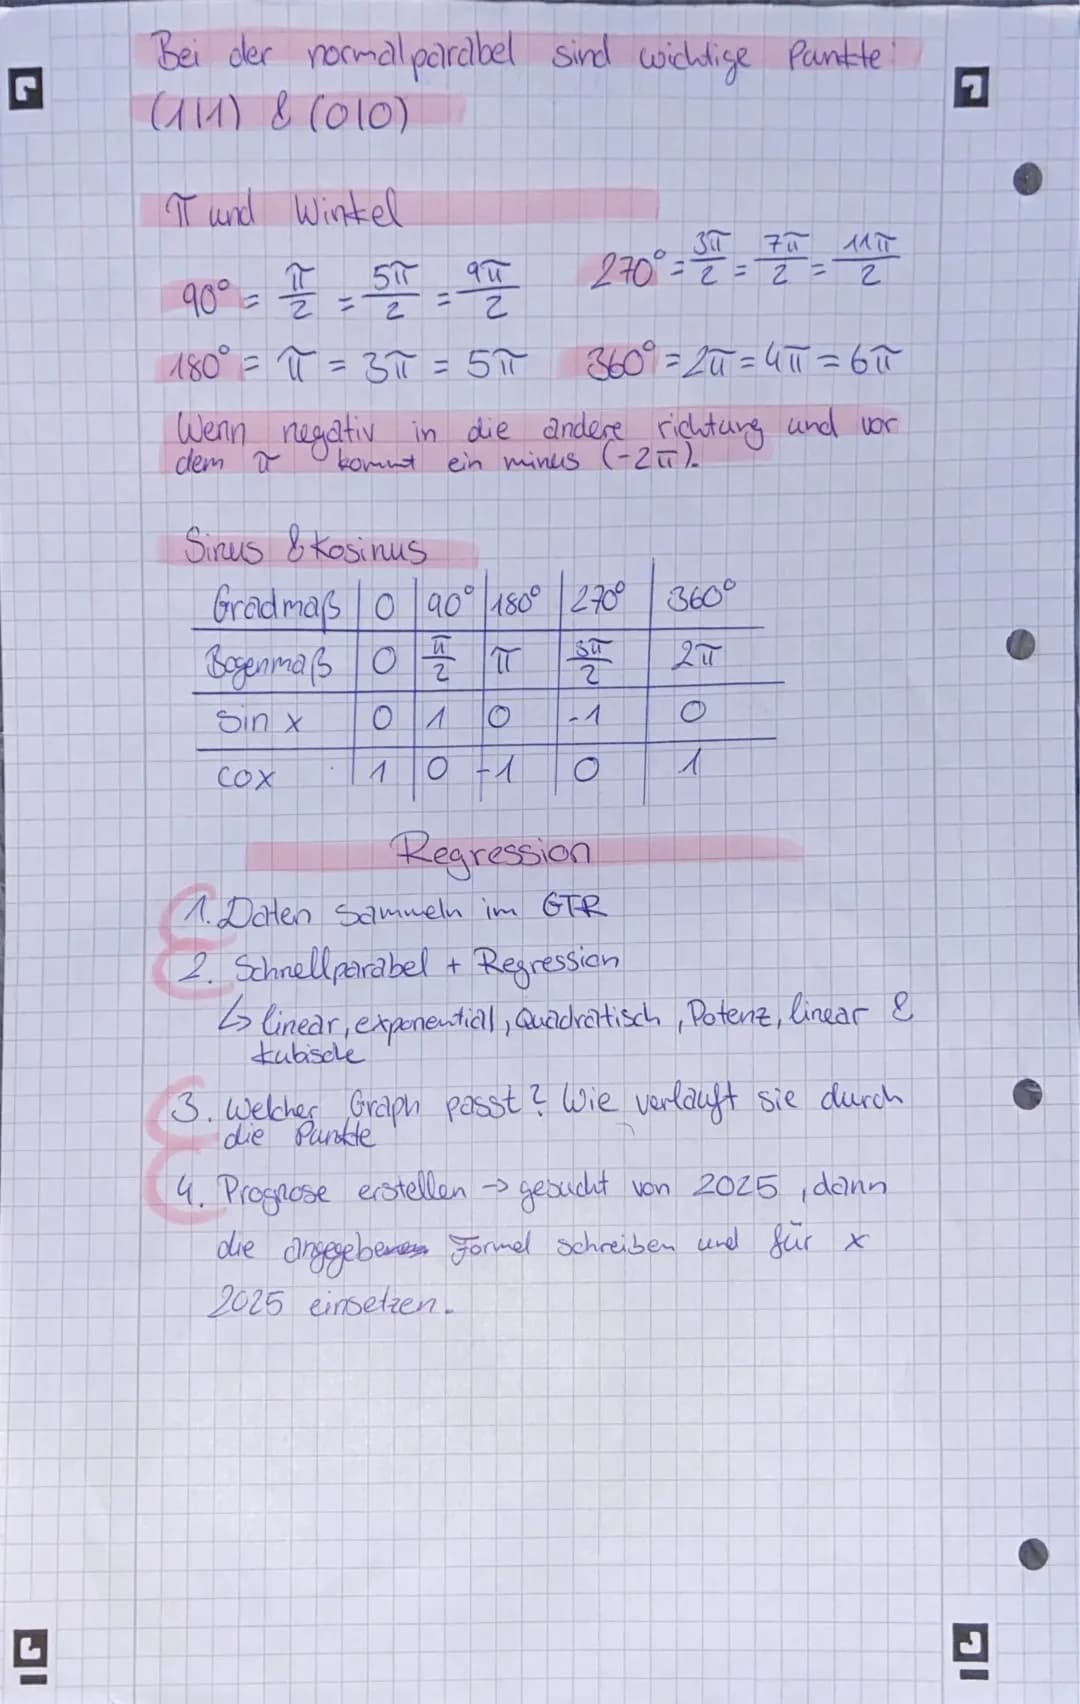 Bei der normalparabel sind wichtige Punkte:
(1|1) & (0|0)
π und Winkel
90° = π/2 = 5π/2 = 9π/2
270° = 3π/2 = 7π/2 = 11π/2
180° = π = 3π = 5π
360° = 2π = 4π = 6π
Wenn negativ in die andere richtung und vor
dem π kommt ein minus (-2π).
Sinus & Kosinus
Gradmaß | 0 | 90° | 180° | 270° | 360°
Bogenmaß | 0 | π/2 | π | 3π/2 | 2π
Sin x | 0 | 1 | 0 | -1 | 0
cox | 1 | 0 | -1 | 0 | 1
Regression
1. Daten sammeln im GTR
2. Schnellparabel + Regression
↳ linear, exponential, Quadratisch, Potenz, linear &
kubische
3. Welcher Graph passt? Wie verläuft sie durch
die Punkte
4. Prognose erstellen → gesucht von 2025, dann
die angegebenen Formel schreiben und für x
2025 einsetzen.